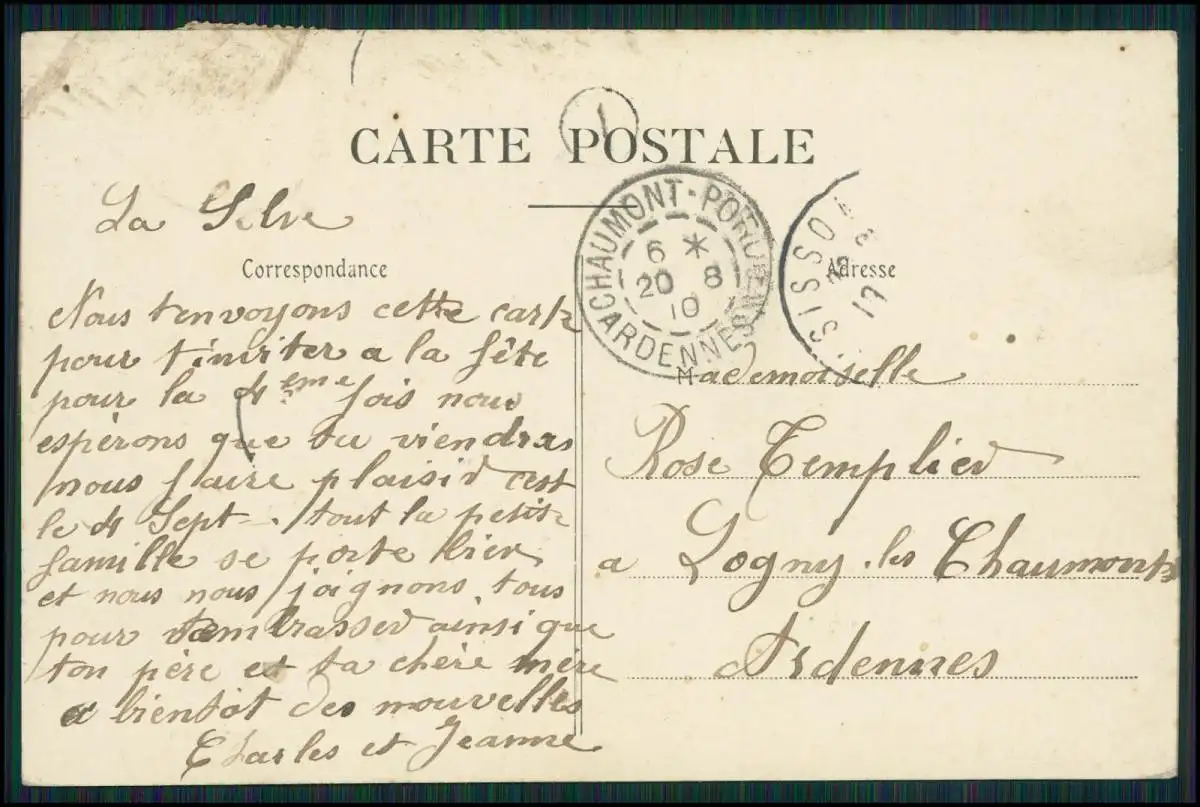 CARTE POSTALE
La Selve
Correspondance
Nous t'envoyons cette carte
pour t'inviter a la fête
pour la 4eme fois nous
espèrons que tu viendras
nous faire plaisir c'est
le 4 Sept. tout la petite
famille se porte bien
et nous nous joignons tous
pour t'embrasser ainsi que
ton père et ta chère mère
a bientot des nouvelles
Charles et Jeanne
CHAUMONT-PORCIEN
6 *
20 8
10
ARDENNES
SISSO
Adresse
Mademoiselle
Rose Templier
a Logny-les Chaumonts
Ardennes